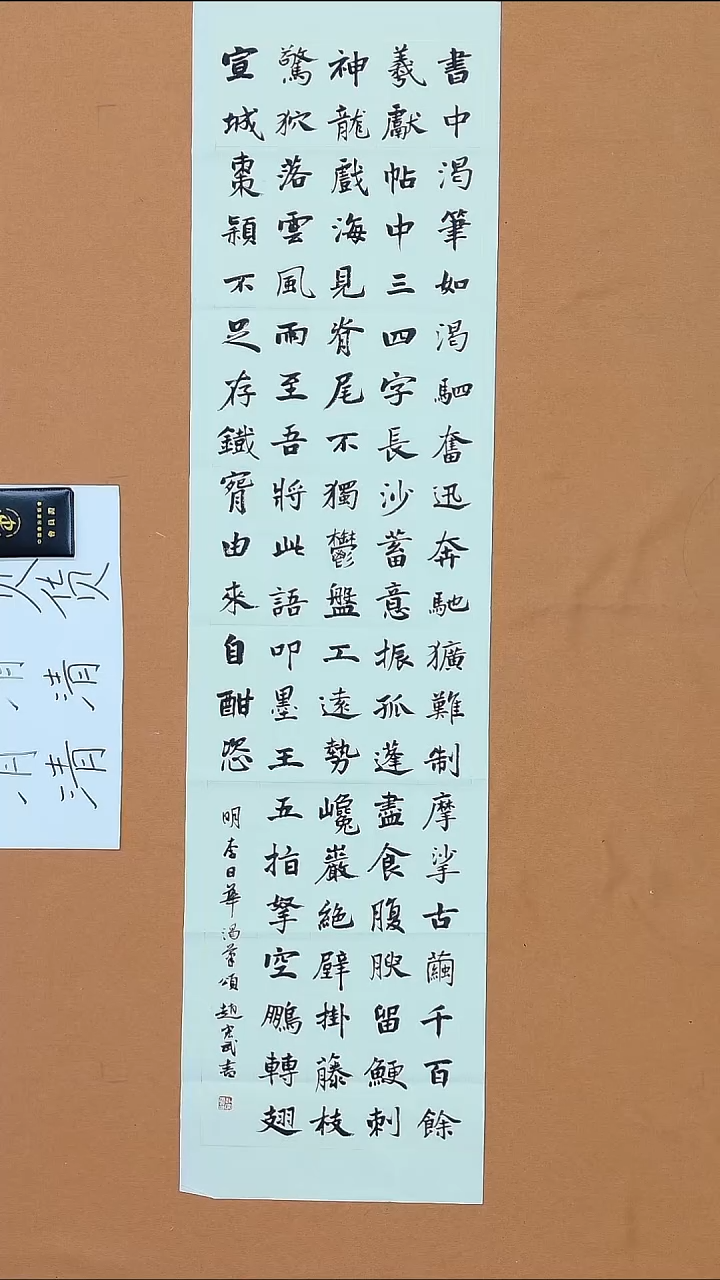 書中渴筆如渴驷奮迅奔馳獷難制摩挲古繭千百餘
羲獻帖中三四字長沙蓄意振孤蓬盡食腹腴留鯁刺
神龍戲海見脊尾不獨鬱盤工遠勢巉巖絕壁掛藤枝
驚狖落雲風雨至吾將此語叩墨王五指拏空鵬轉翅
宣城棗穎不足存鐵窅由來自酣恣
明李日華渴筆頌趙宏武書
會員證
貨
清
清